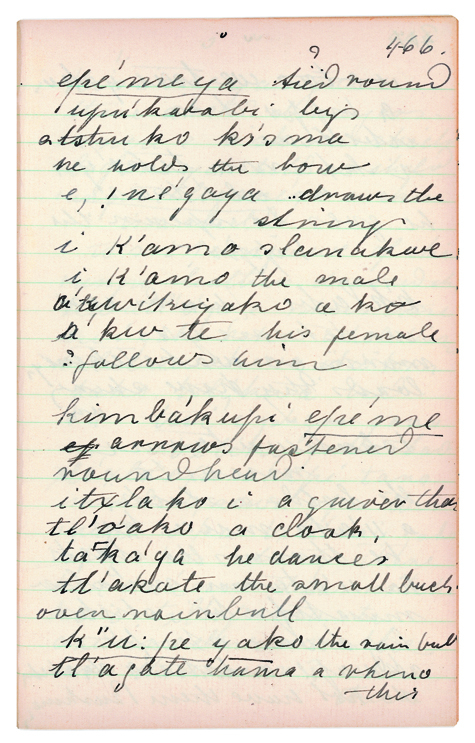 466.
?
epé'meya tied round
upi'karabi legs
atshu ko ki's ma
he holds the bow
e, !né'gaya ..draws the
string
i K'amo slanakwe
i K'amo the male
a ko
kw te his female
? follows him
kimbákupi epé'me
arrows fastened
round head.
itxlako i a quiver tha
tl'oako a cloak,
ta ka'ya he dances
tl'akate the small buck
over rainbull
K"u: pe yako the rain bull
tl'agate hama a rhino
this